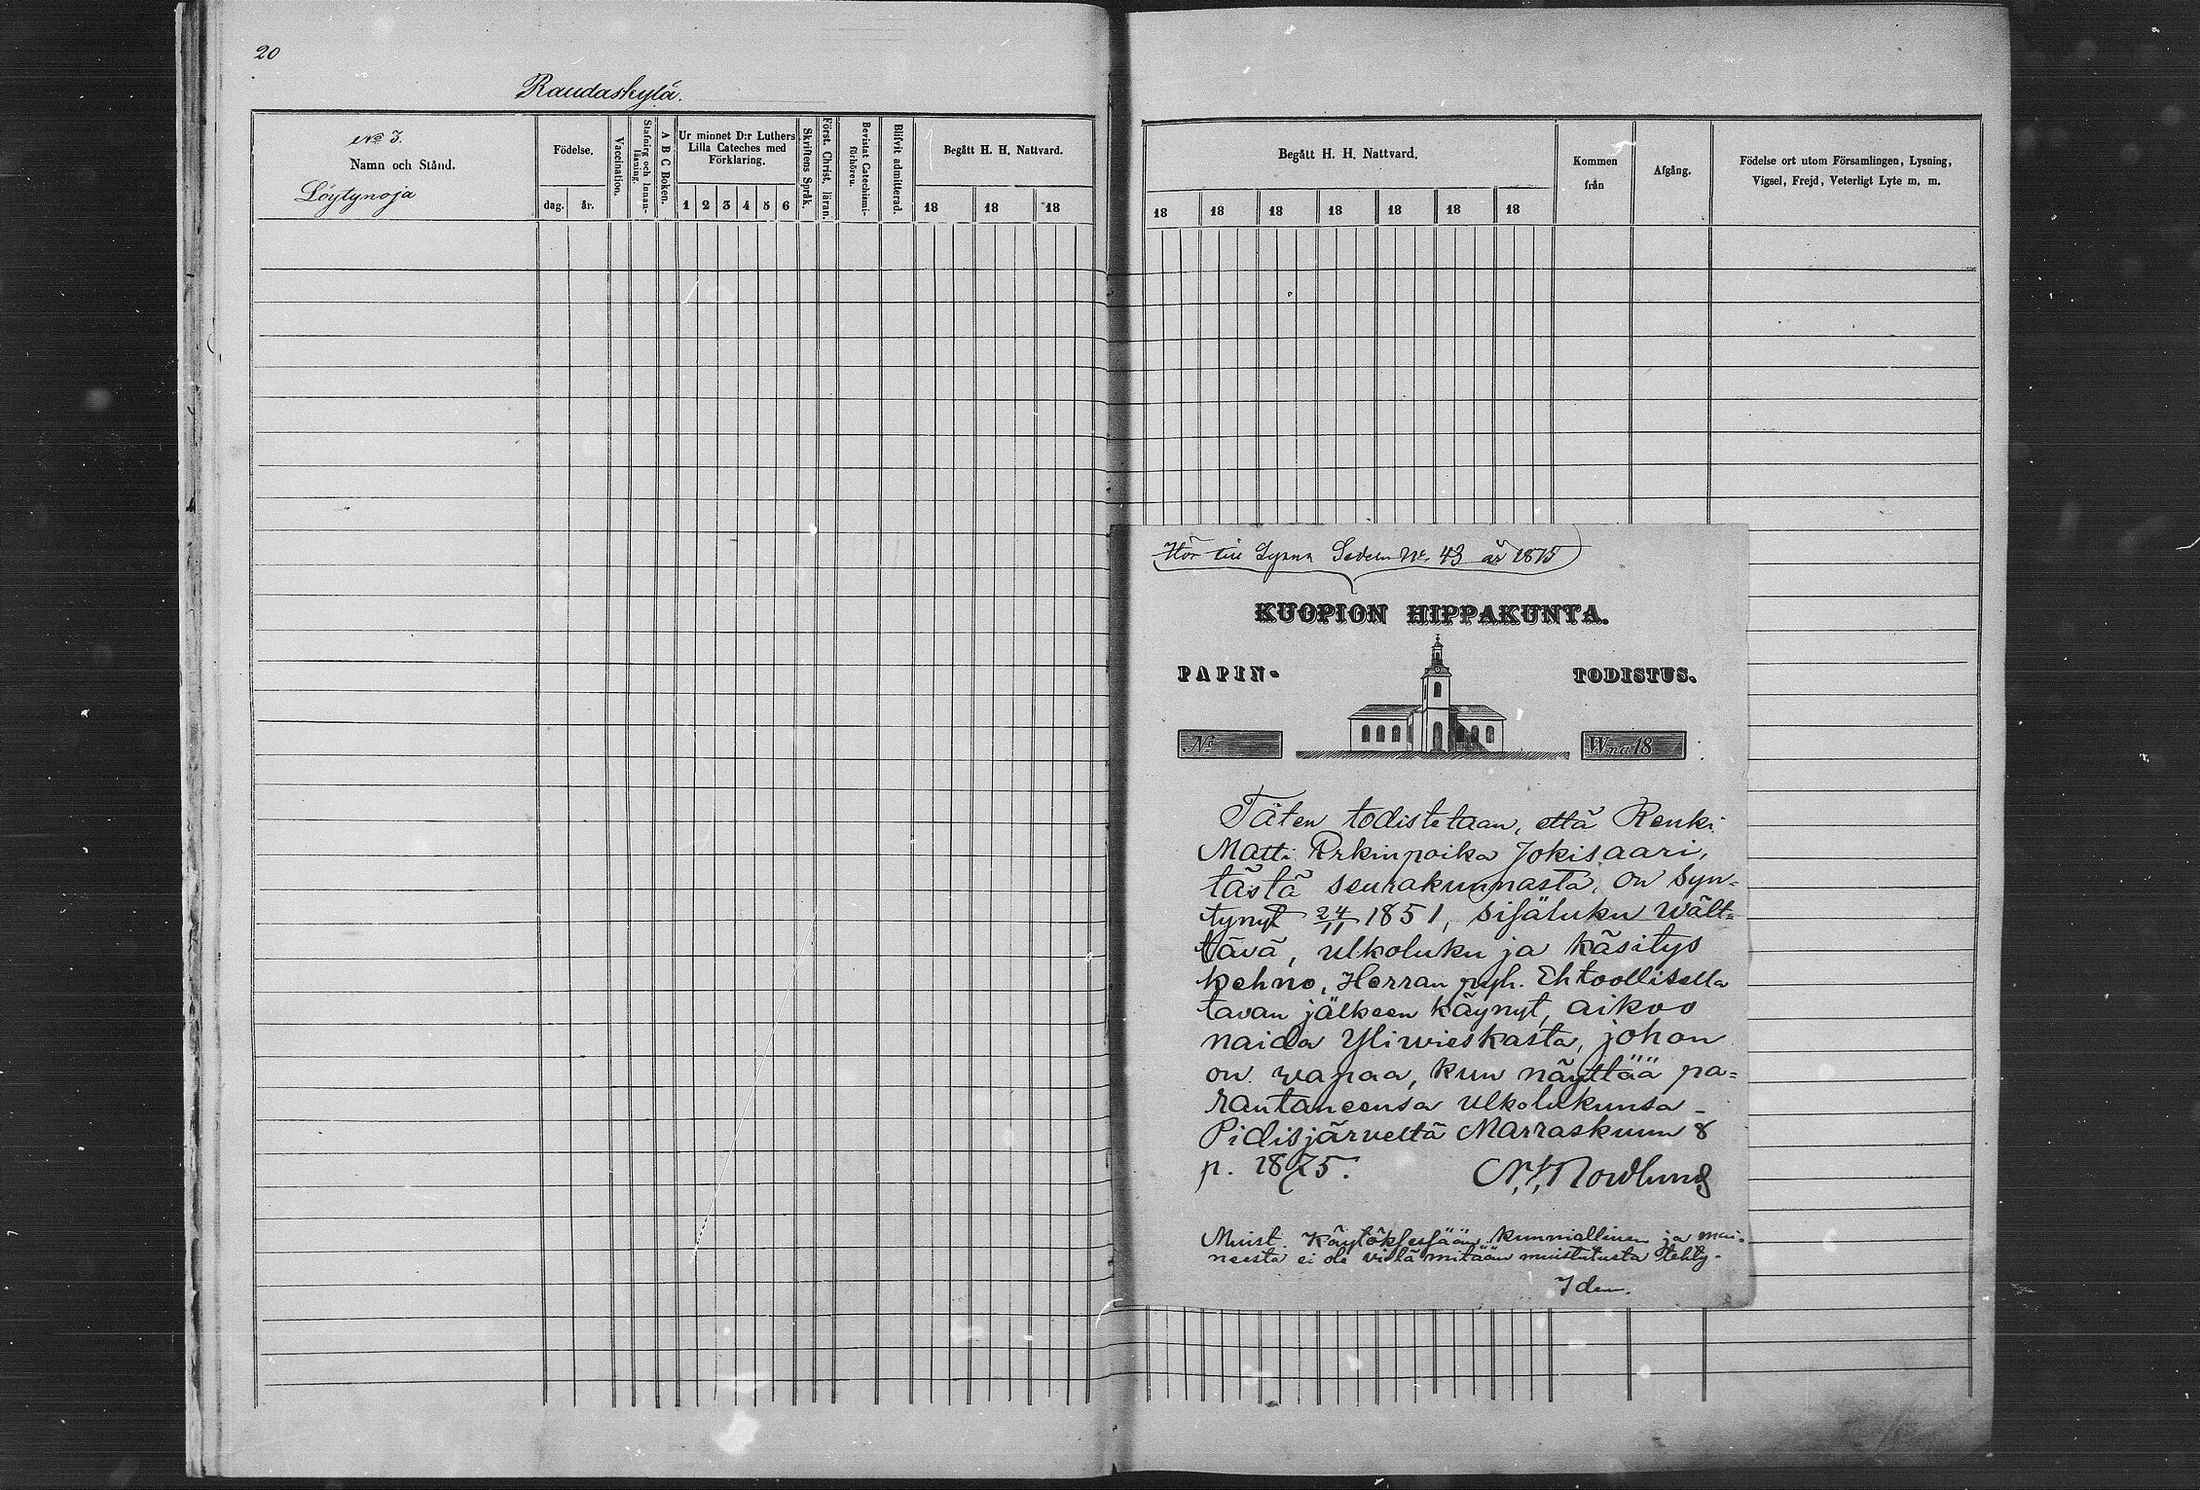 20
Raudaskylä.
No 3.
Namn och Stånd.
Löytynoja
Födelse.
dag. år.
Vaccination.
Stafning och Innan-
läsning.
A B C Boken.
Ur minnet D:r Luthers
Lilla Cateches med
Förklaring.
1 2 3 4 5 6
Skriftens Språk.
Först. Christ. läran.
Bevistat Catechismi-
förhören.
Blifvit admitterad.
Begått H. H. Nattvard.
18 18 18
Begått H. H. Nattvard.
18 18 18 18 18 18 18
Kommen
från
Afgång.
Födelse ort utom Församlingen, Lysning,
Vigsel, Frejd, Veterligt Lyte m. m.
Hör till Lysn. Sedeln No. 43 år 1875
KUOPION HIPPAKUNTA.
PAPIN- TODISTUS.
No
Wna 18
Täten todistetaan, että Renki
Matti Erkinpoika Jokisaari,
tästä seurakunnasta, on syn=
tynyt 24/11 1851, sisäluku wält=
tävä, ulkoluku ja käsitys
kehno, Herran pyh. Ehtoollisella
tavan jälkeen käynyt, aikoo
naida Yliwieskasta, johon
on wapaa, kun näyttää pa=
rantaneensa ulkolukunsa _
Pidisjärveltä Marraskuun 8
p. 1875. Nordlund
Muist. Käytöksessään kunniallinen ja mai=
neesta ei ole vielä mitään muistutusta tehty.
Idem.